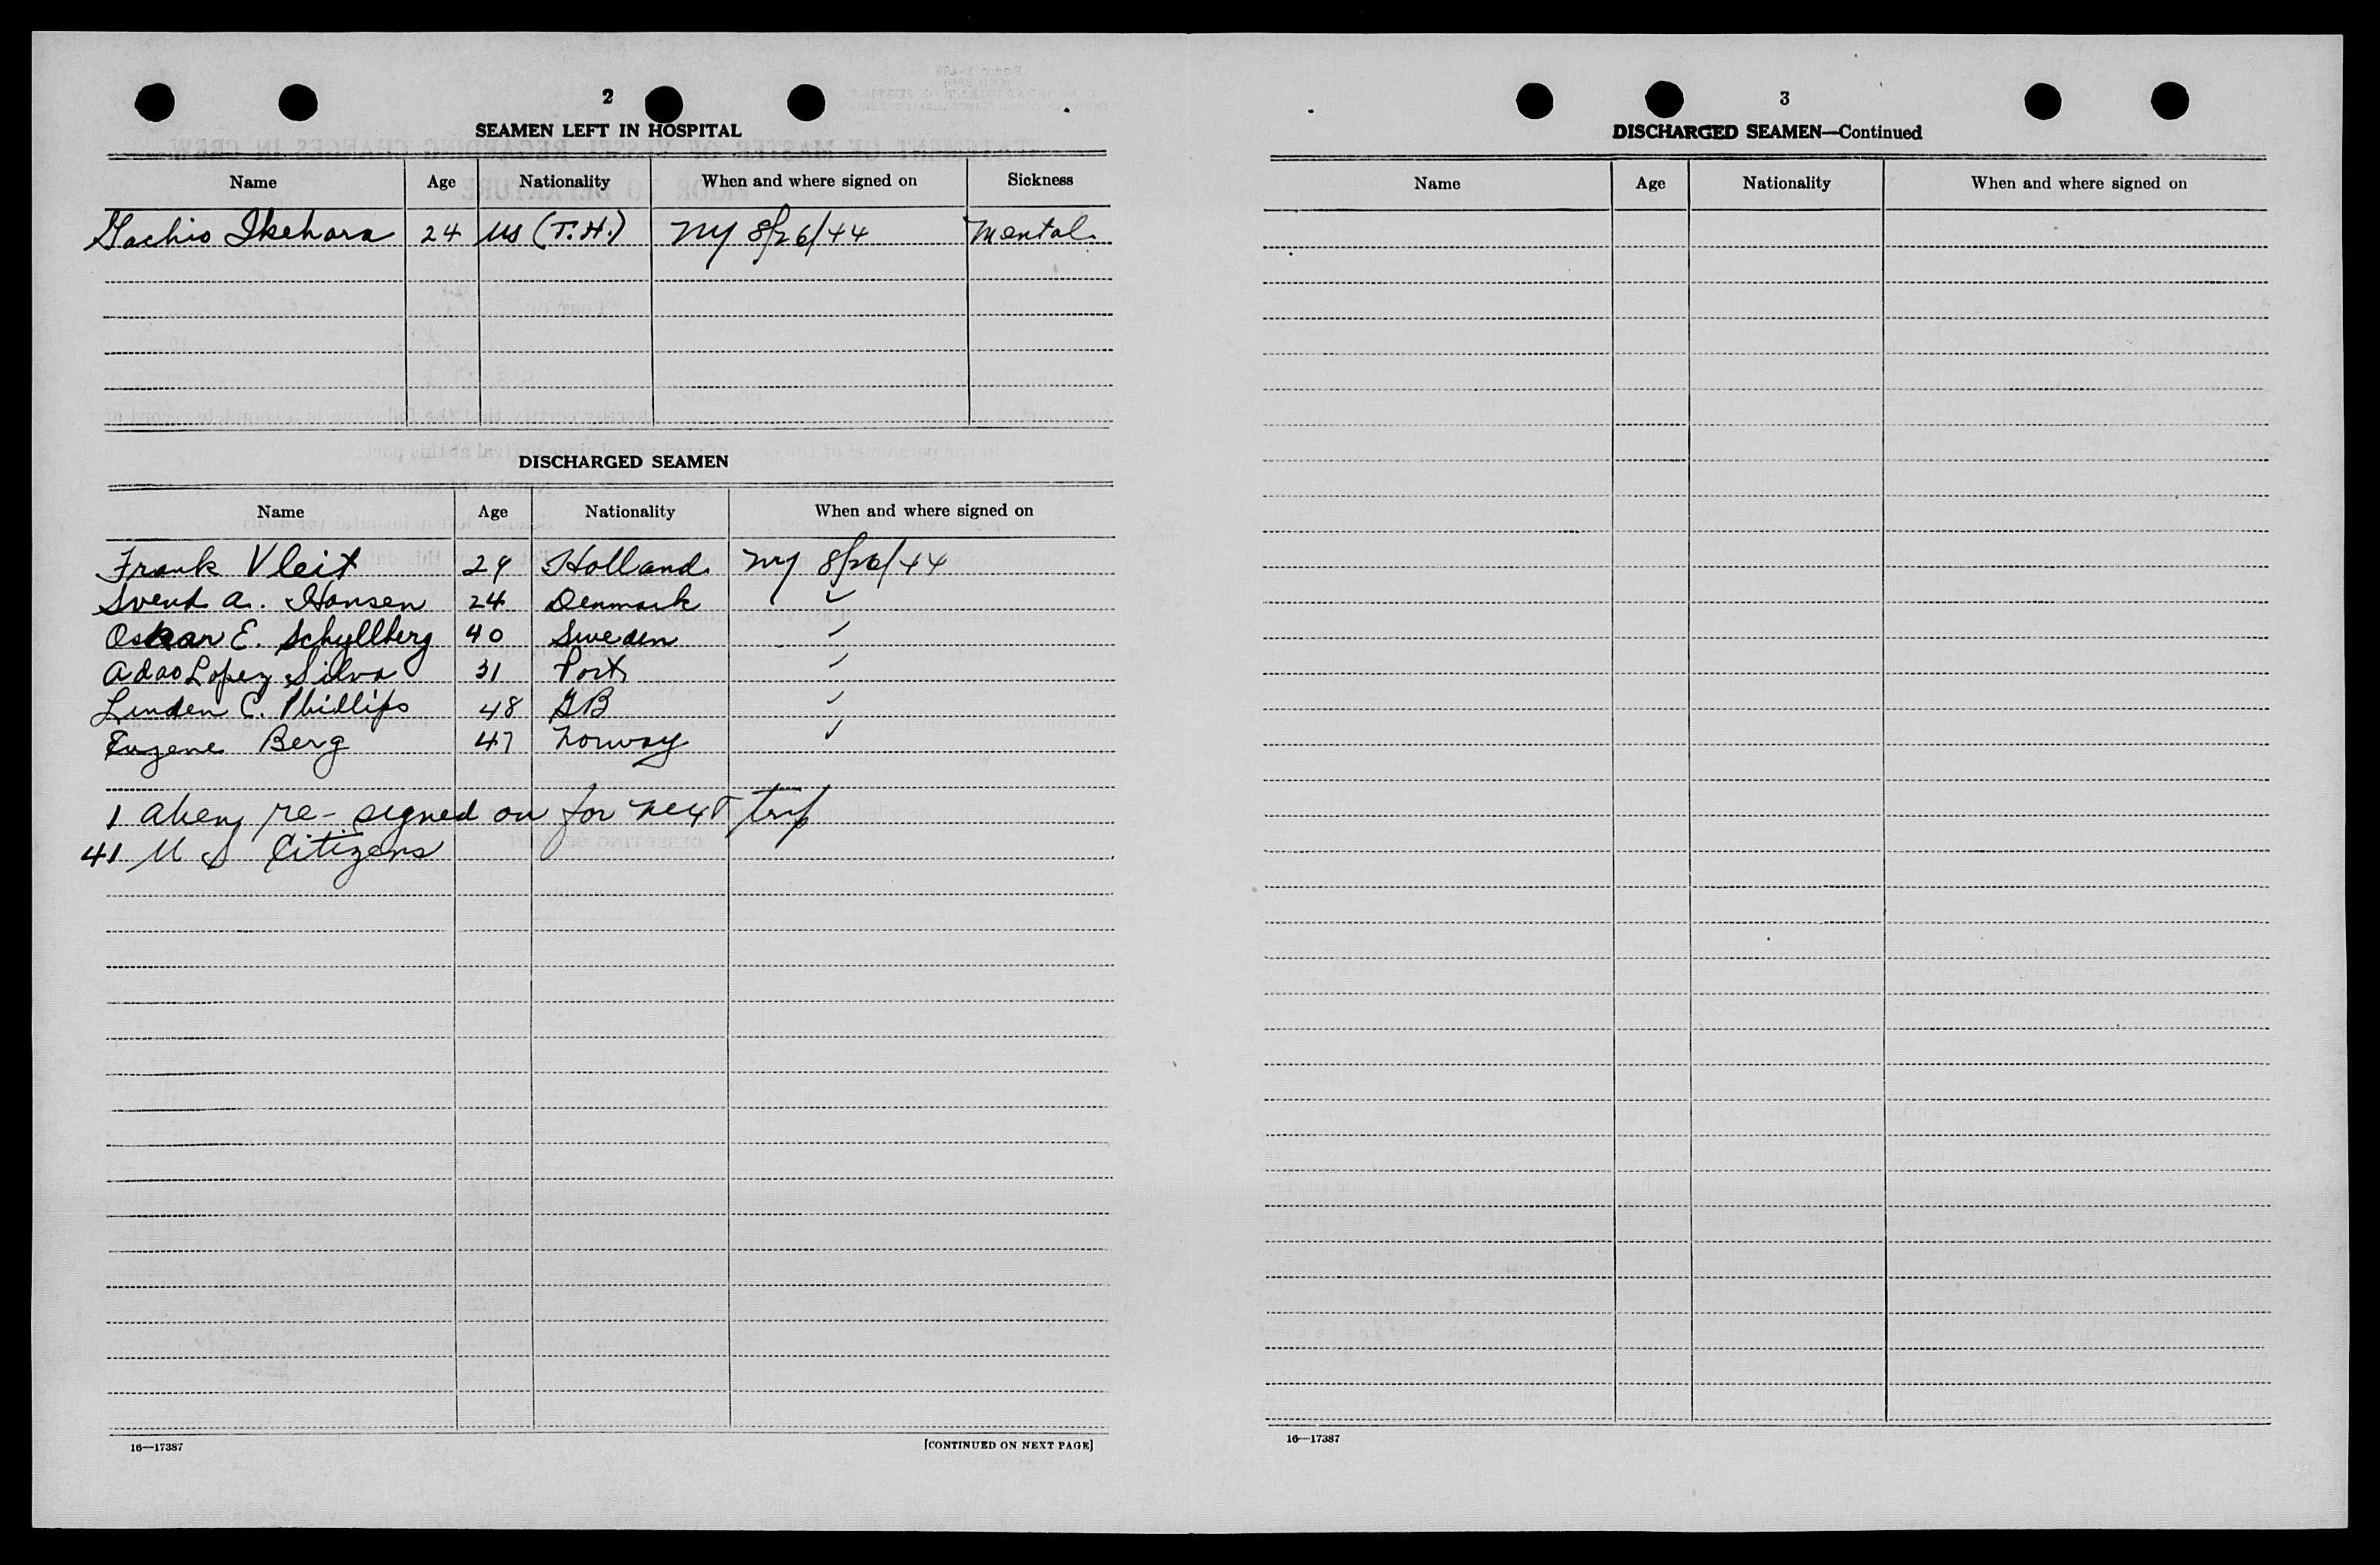 2
SEAMEN LEFT IN HOSPITAL
Name Age Nationality When and where signed on Sickness
Sachio Ikehara 24 US (T.H.) NY 8/26/44 Mental
DISCHARGED SEAMEN
Name Age Nationality When and where signed on
Frank Vleit 29 Holland NY 8/26/44
Svend A. Hansen 24 Denmark ✓
Oskar E. Schyllberg 40 Sweden ✓
Adao Lopez Silva 31 Port ✓
Linden C. Phillips 48 GB ✓
Eugene Berg 47 Norway ✓
1 alien re-signed on for next trip
41 U S Citizens
16—17387 [CONTINUED ON NEXT PAGE]
3
DISCHARGED SEAMEN—Continued
Name Age Nationality When and where signed on
16—17387